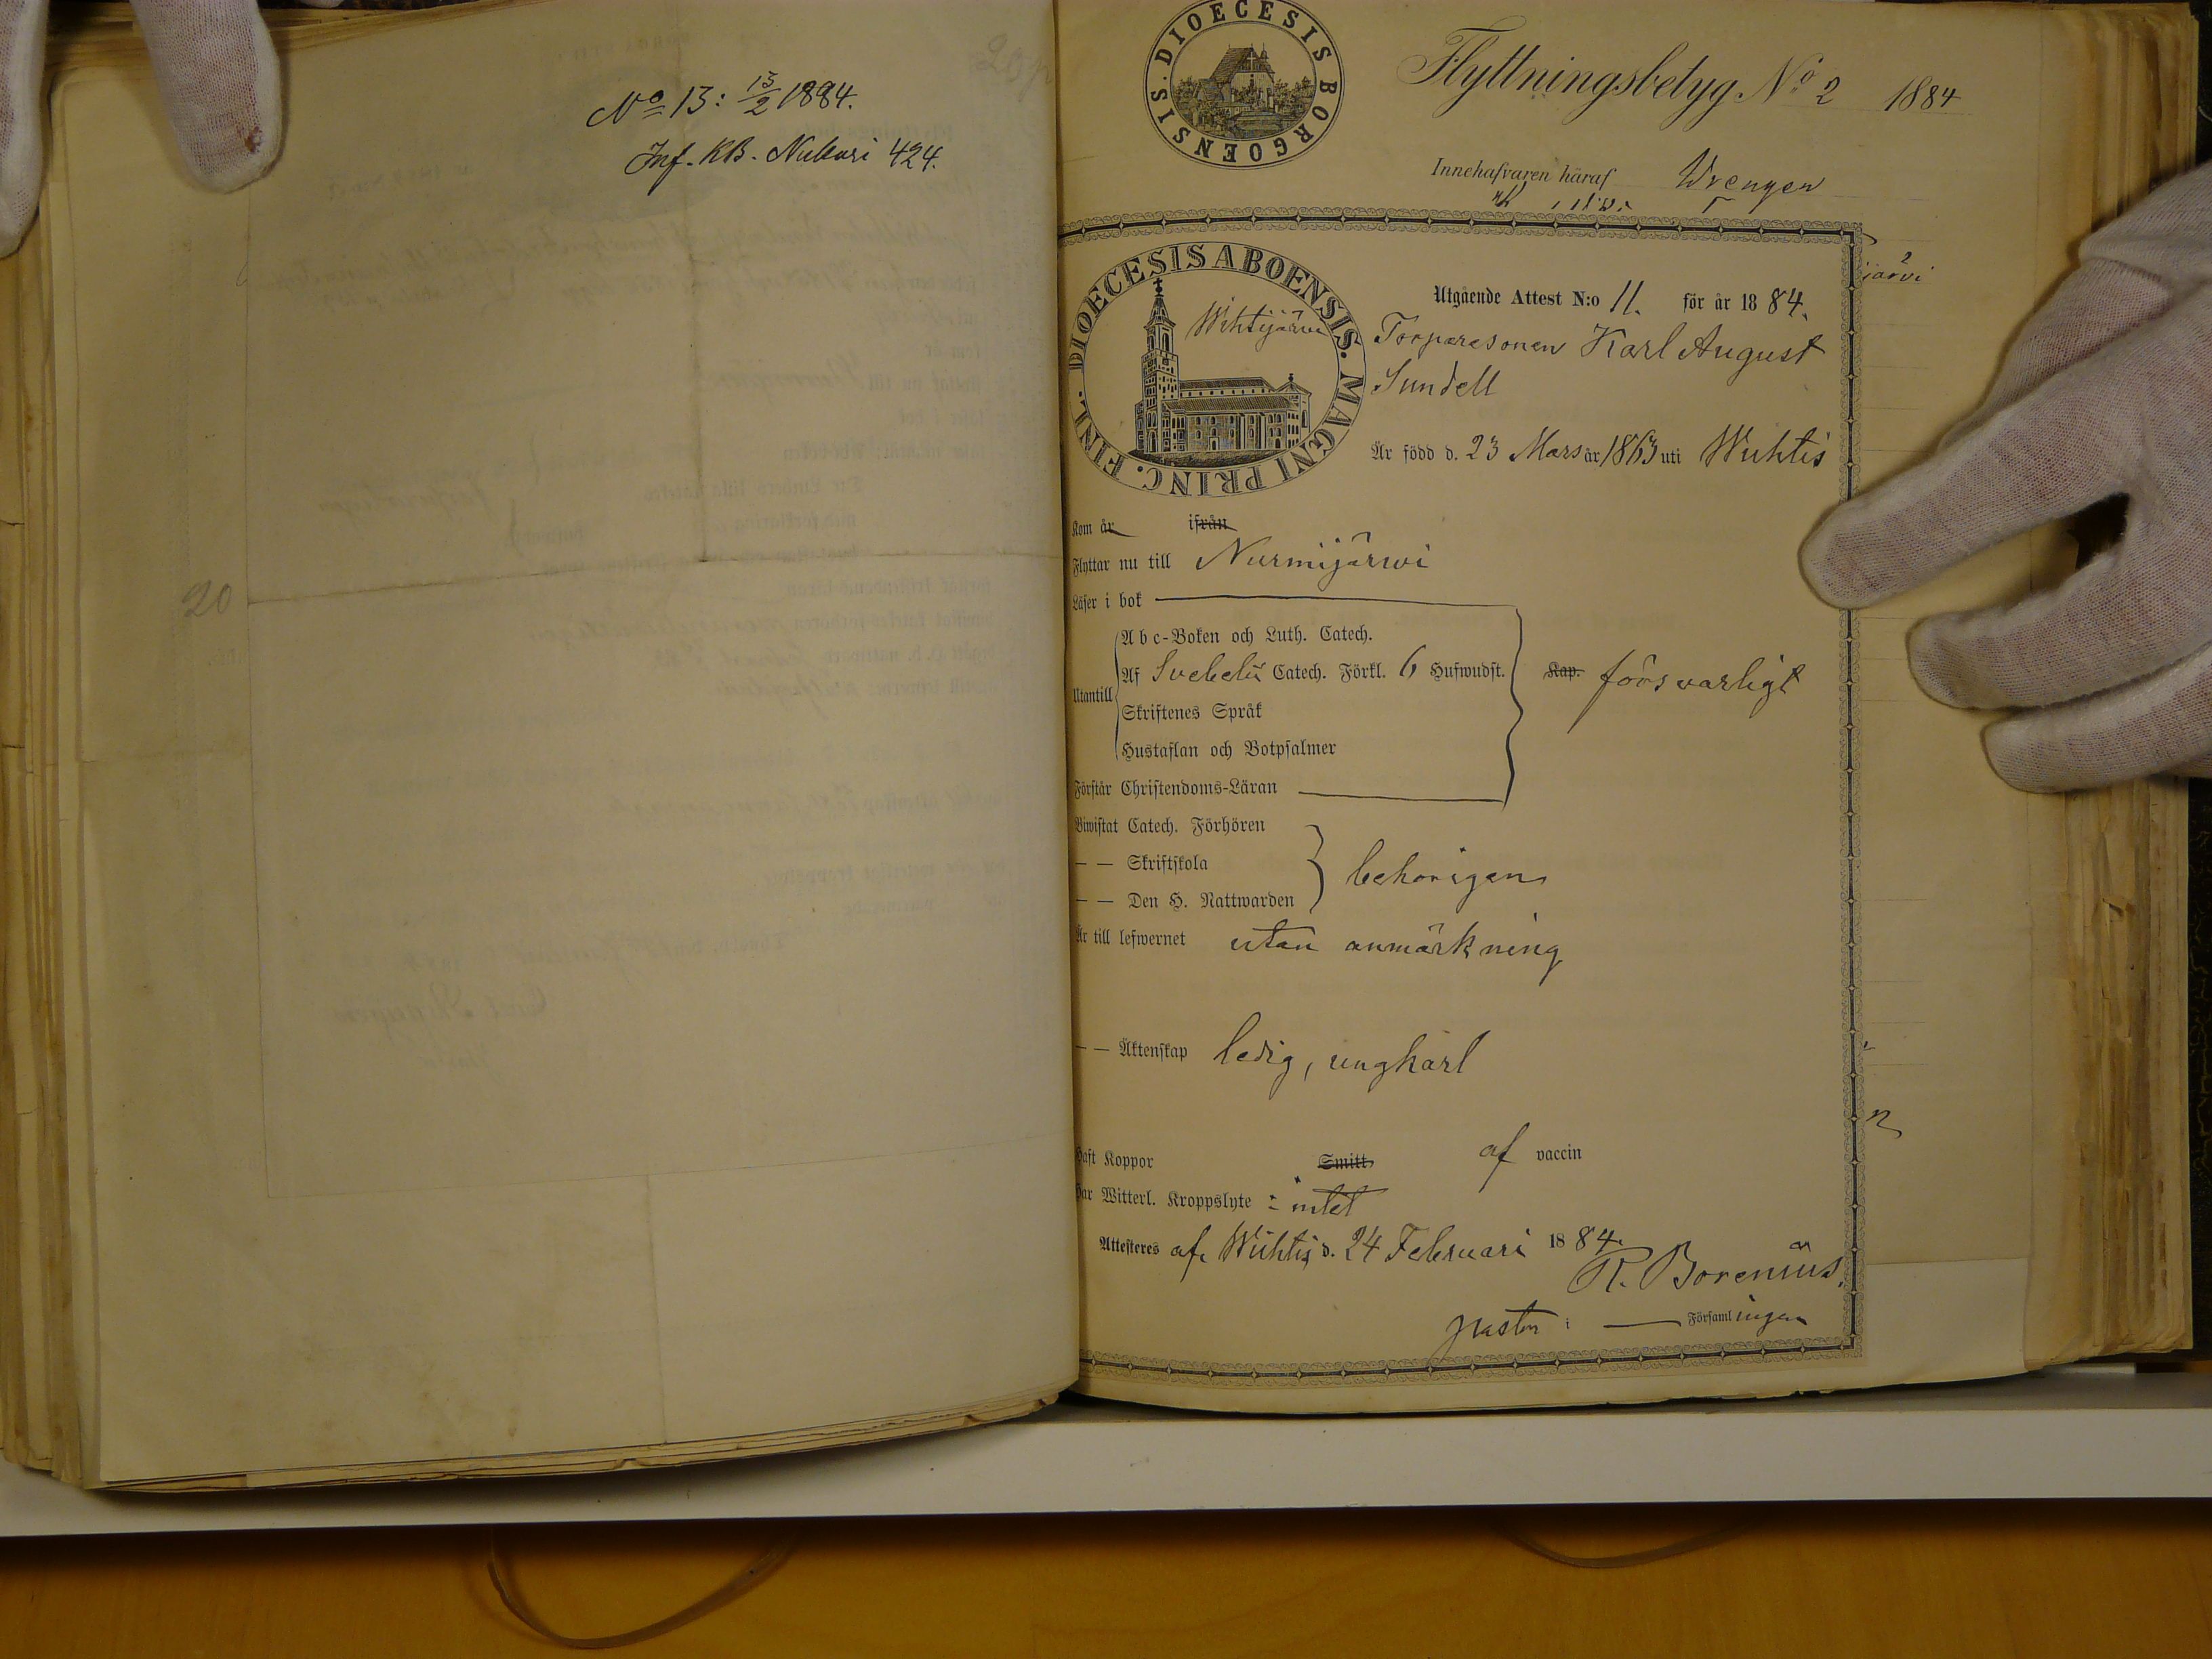 No 13: 13/2 1884.
Inf. KB. Nukari 424.
20
DIOECESIS BORGOENSIS.
Flyttningsbetyg No 2 1884
Innehafvaren häraf Drengen
järvi
DIOECESIS ABOENSIS. MAGNI PRINC. FINL.
Wihtijärvi
Utgående Attest N:o 11. för år 1884.
Torparesonen Karl August
Sundell
Är född d. 23 Mars år 1863 uti Wichtis
Kom år ifrån
Flyttar nu till Nurmijärvi
Läser i bok
Abc-Boken och Luth. Catech.
Utantill
Af Svebelii Catech. Förkl. 6 Hufwudst. Kap. försvarligt
Skriftenes Språk
Hustaflan och Botpsalmer
Förstår Christendoms-Läran
Biwistat Catech. Förhören
— — Skriftskola
behörigen
— — Den H. Nattwarden
Är till lefwernet utan anmärkning
— — Äktenskap ledig, ungkarl
Haft Koppor Smitt af vaccin
Har Witterl. Kroppslyte intet
Attesteres af Wichtis d. 24 Februari 1884.
R. Borenius.
pastor i Församlingen